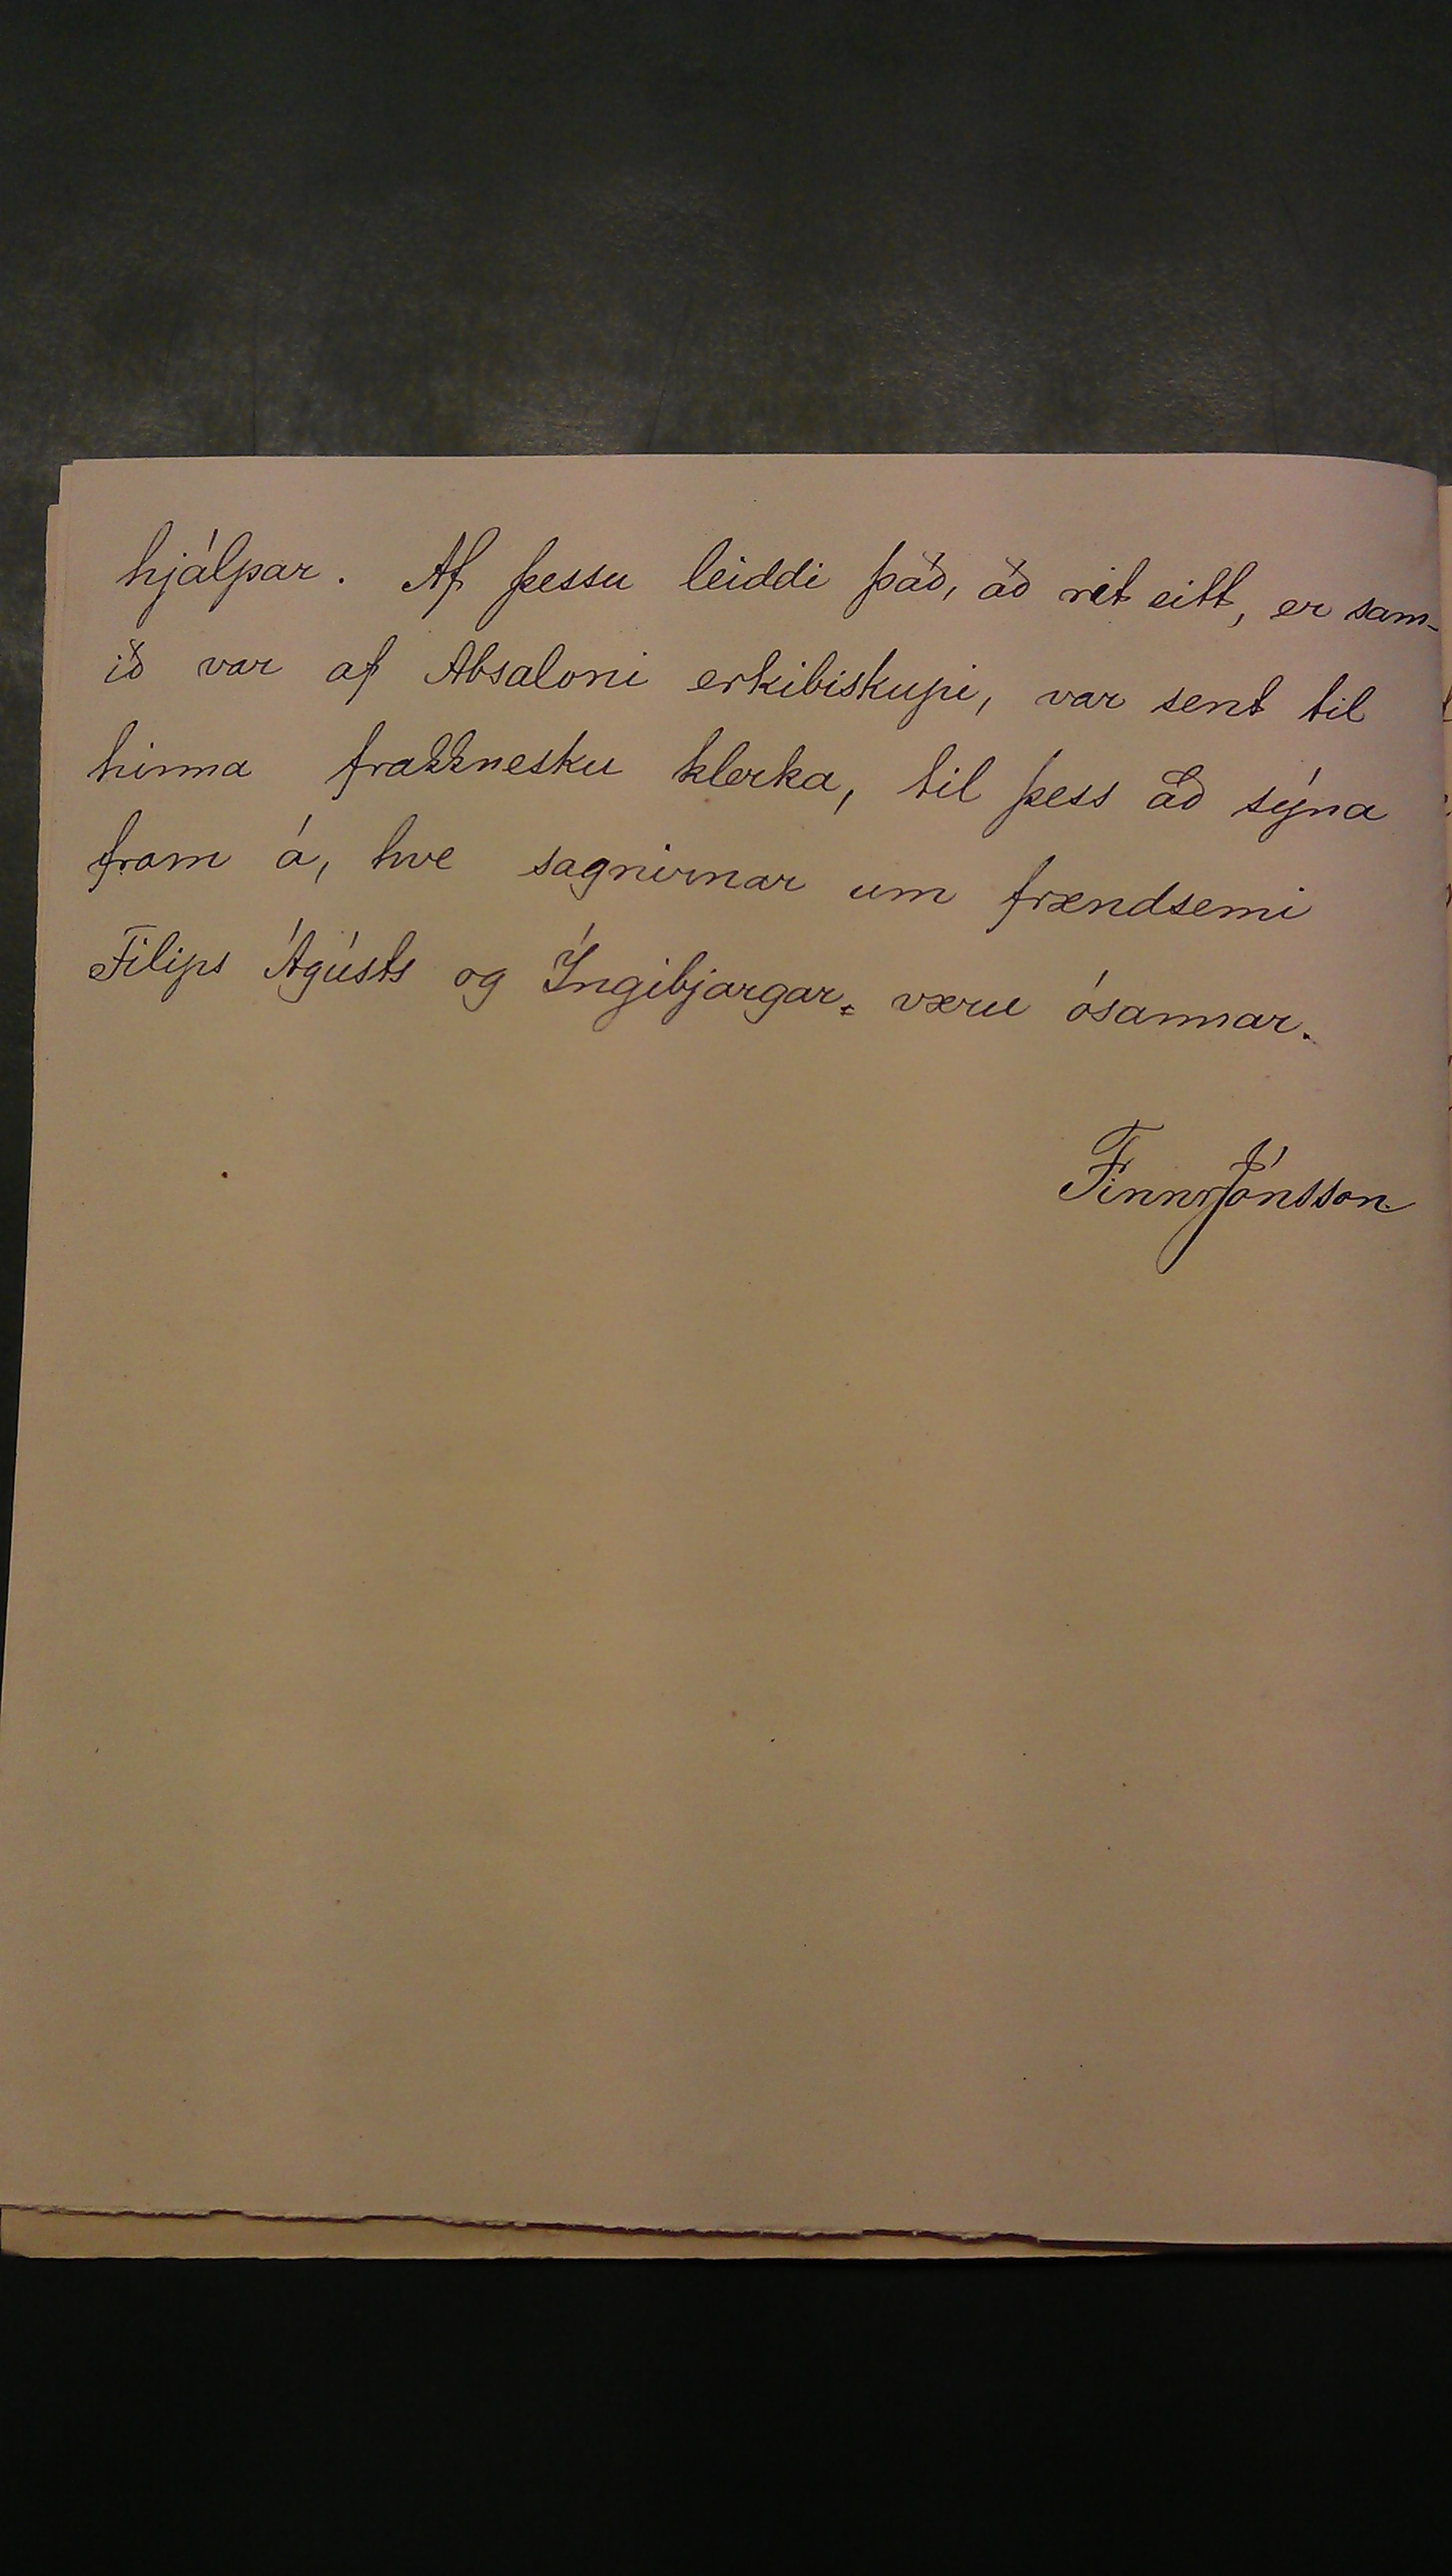 hjálpar. Af þessu leiddi það, að rit eitt, er sam-
ið var af Absaloni erkibiskupi, var sent til
hinna frakknesku klerka, til þess að sýna
fram á, hve sagnirnar um frændsemi
Filips Ágústs og Íngibjargar væru ósannar.
Finnr Jónsson.